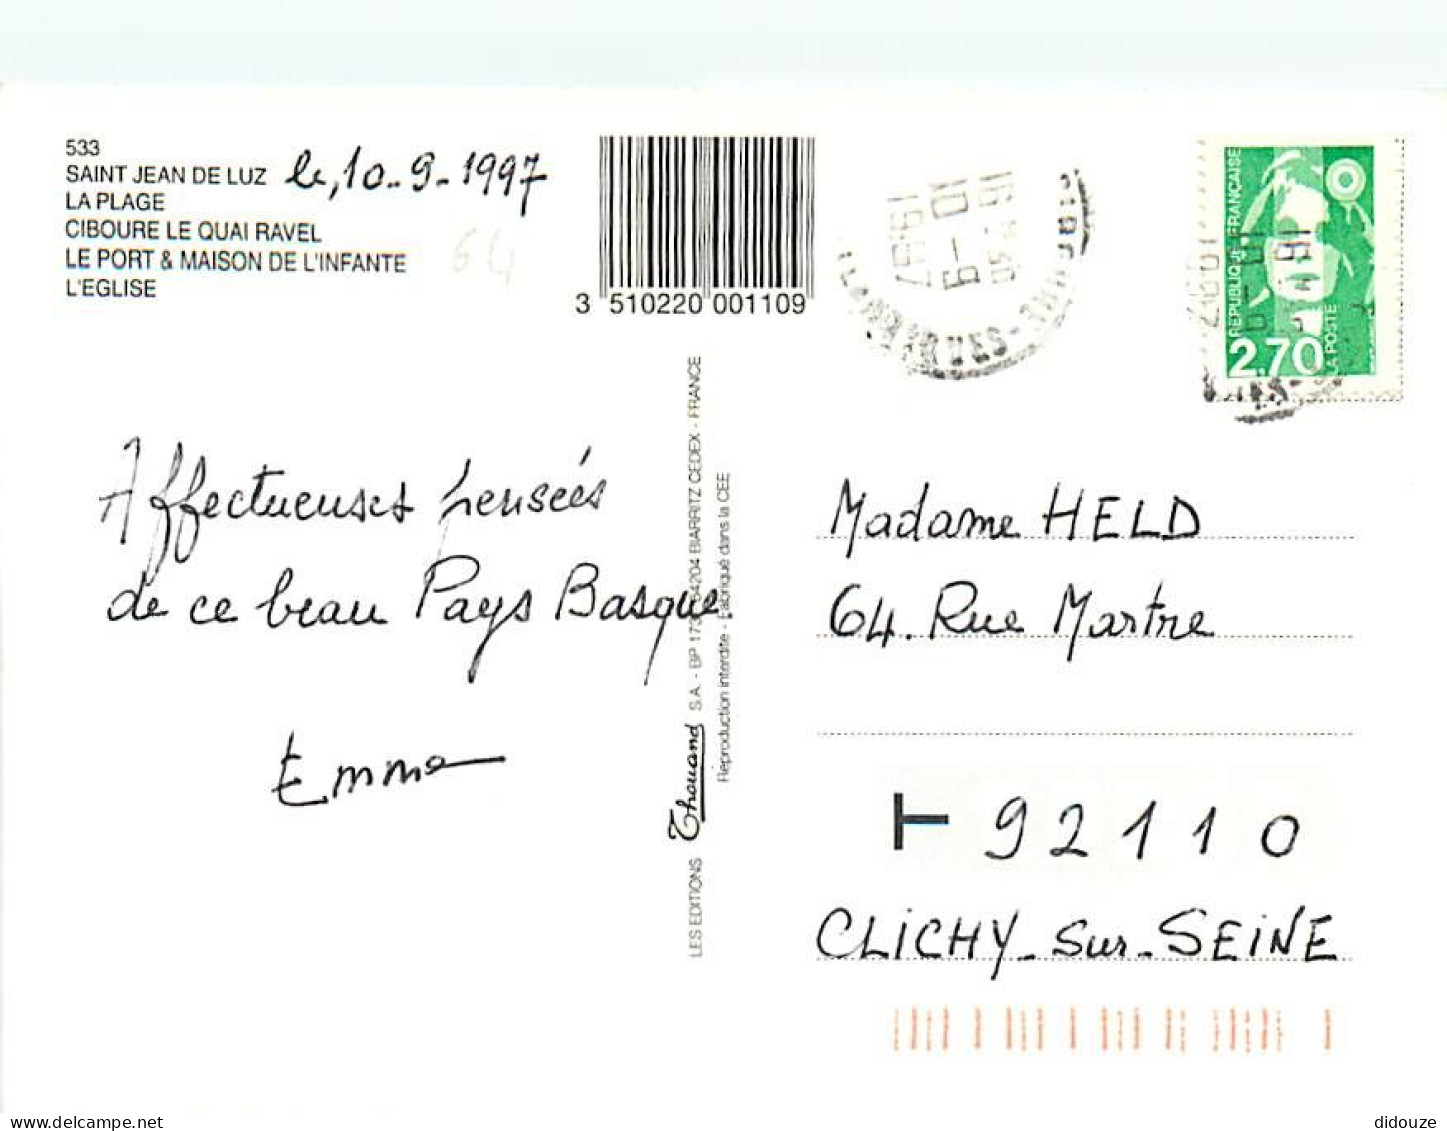 533
SAINT JEAN DE LUZ le, 10-9-1997
LA PLAGE
CIBOURE LE QUAI RAVEL
LE PORT & MAISON DE L'INFANTE
L'EGLISE
64
3 510220 001109
16H
10-9
1997
REPUBLIQUE FRANÇAISE
2,70
LA POSTE
Affectueuses pensées
de ce beau Pays Basque.
Emma
LES EDITIONS Thouand S.A. - BP 173 - 64204 BIARRITZ CEDEX - FRANCE
Reproduction interdite - Fabriqué dans la CEE
Madame HELD
64. Rue Martre
92110
CLICHY-sur-SEINE
delcampe.net
didouze